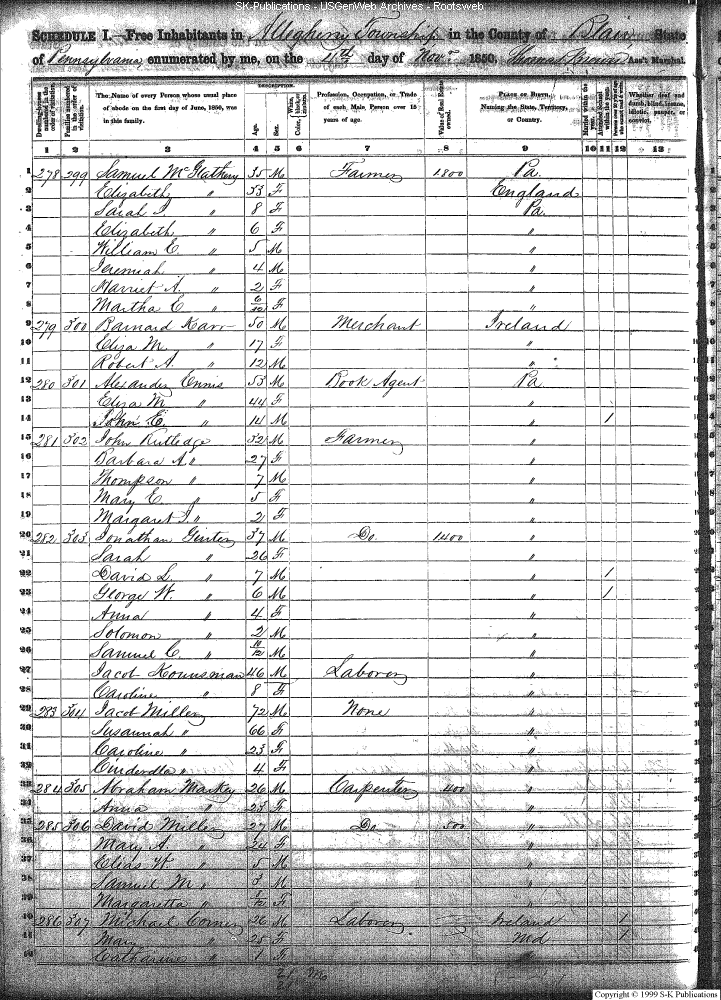 SK-Publications - USGenWeb Archives - Rootsweb
SCHEDULE I.—Free Inhabitants in Allegheny Township in the County of Blair State
of Pennsylvania enumerated by me, on the 4th day of Novr 1850. Thomas Ass't Marshal.
Dwelling-houses numbered in the order of visitation. Families numbered in the order of visitation. The Name of every Person whose usual place of abode on the first day of June, 1850, was in this family. DESCRIPTION. Age. Sex. Color, White, black, or mulatto. Profession, Occupation, or Trade of each Male Person over 15 years of age. Value of Real Estate owned. PLACE OF BIRTH. Naming the State, Territory, or Country. Married within the year. Attended School within the year. Whether deaf and dumb, blind, insane, idiotic, pauper, or convict.
1 2 3 4 5 6 7 8 9 10 11 12 13
1 278 299 Samuel McGlathery 35 M Farmer 1800 Pa.
2 Elizabeth " 33 F England
3 Sarah J. " 8 F Pa.
4 Elizabeth " 6 F "
5 William E. " 5 M "
6 Jeremiah " 4 M "
7 Harriet A. " 2 F "
8 Martha E. " 6/12 F "
9 279 300 Barnard Karr 50 M Merchant Ireland
10 Eliza M. " 17 F "
11 Robert A. " 12 M "
12 280 301 Alexander Ennis 53 M Book Agent Pa
13 Eliza M. " 44 F "
14 John E. " 14 M " 1
15 281 302 John Rutledge 32 M Farmer "
16 Barbara A. " 27 F "
17 Thompson " 7 M "
18 Mary E. " 5 F "
19 Margaret J. " 2 F "
20 282 303 Jonathan Ginter 37 M Do. 1400 "
21 Sarah " 26 F "
22 David L. " 7 M " 1
23 George W. " 6 M " 1
24 Anna " 4 F "
25 Solomon " 2 M "
26 Samuel C. " 10/12 M "
27 Jacob Kounsman 46 M Laborer "
28 Caroline " 8 F "
29 283 304 Jacob Miller 72 M None "
30 Susannah " 66 F "
31 Caroline " 23 F "
32 Cinderella " 4 F "
33 284 305 Abraham Markey 26 M Carpenter 400 "
34 Anna " 23 F "
35 285 306 David Miller 27 M Do. 500 "
36 Mary A. " 24 F "
37 Elias W. " 5 M "
38 Samuel M. " 3 M "
39 Margaretta " F "
40 286 307 Michael Comer 26 M Laborer Ireland 1
41 Mary " 25 F Md 1
42 Catharine " 1 F "
Copyright © 1999 S-K Publications